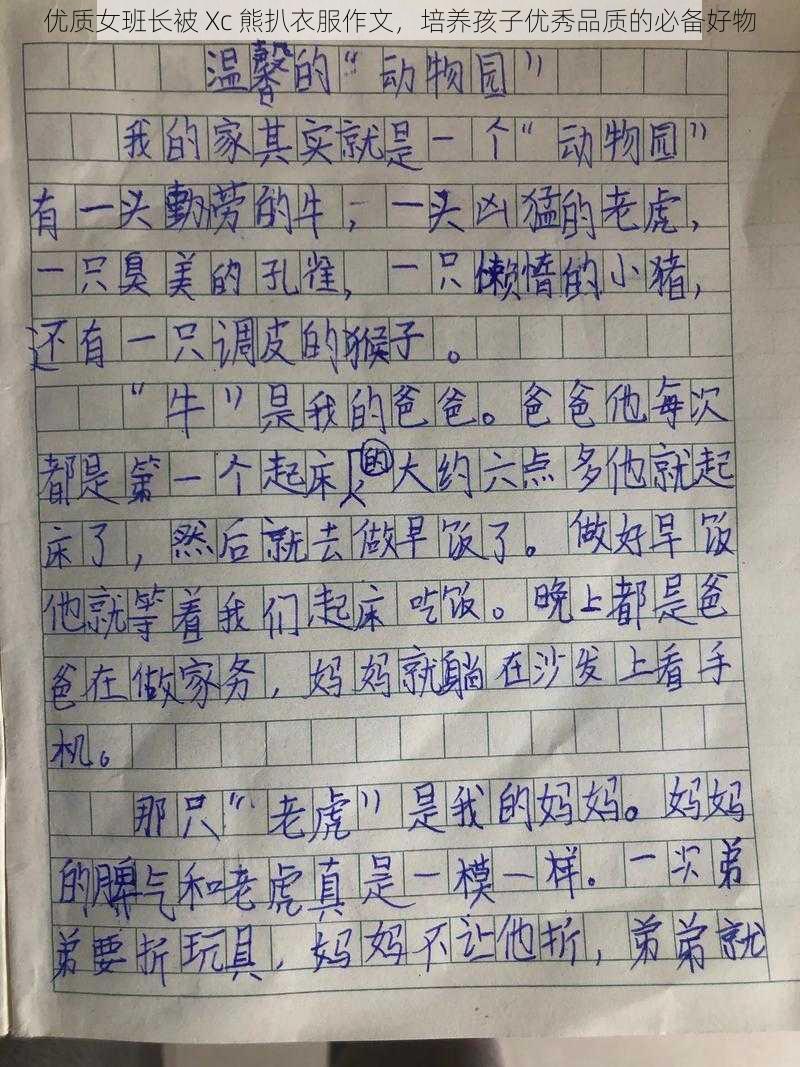 优质女班长被 Xc 熊扒衣服作文，培养孩子优秀品质的必备好物
温馨的“动物园”
我的家其实就是一个“动物园”
有一头勤劳的牛，一头凶猛的老虎，
一只臭美的孔雀，一只懒惰的小猪，
还有一只调皮的猴子。
“牛”是我的爸爸。爸爸他每次
都是第一个起床的大约六点多他就起
床了，然后就去做早饭了。做好早饭
他就等着我们起床吃饭。晚上都是爸
爸在做家务，妈妈就躺在沙发上看手
机。
那只“老虎”是我的妈妈。妈妈
的脾气和老虎真是一模一样。一次弟
弟要折玩具，妈妈不让他折，弟弟就